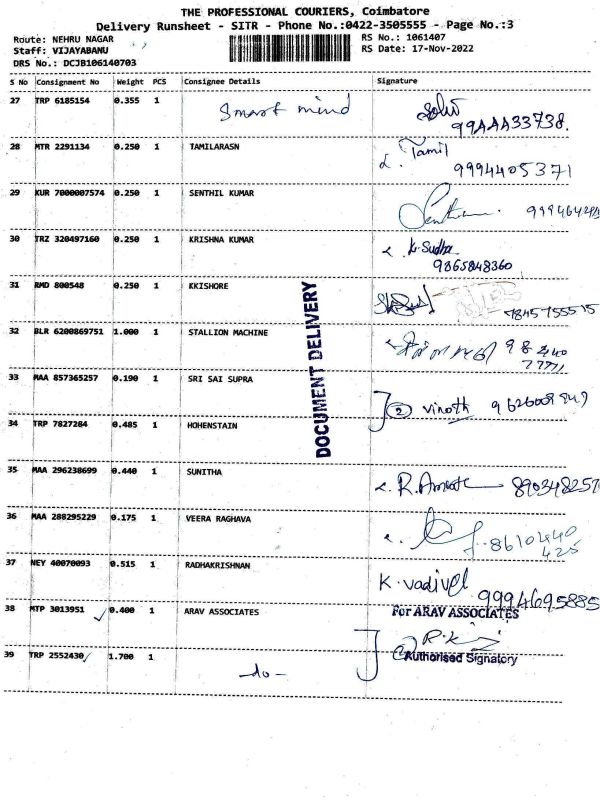 THE PROFESSIONAL COURIERS, Coimbatore
Delivery Runsheet - SITR - Phone No.:0422-3505555 - Page No.:3
Route: NEHRU NAGAR
Staff: VIJAYABANU
DRS No.: DCJB106140703
RS No.: 1061407
RS Date: 17-Nov-2022
S No Consignment No Weight PCS Consignee Details Signature
27 TRP 6185154 0.355 1 Smart mind
99AAA33738.
28 MTR 2291134 0.250 1 TAMILARASN Tamil
9994405371
29 KUR 7000007574 0.250 1 SENTHIL KUMAR
30 TRZ 320497160 0.250 1 KRISHNA KUMAR K. Sudha
9865848360
31 RMD 800548 0.250 1 KKISHORE 7845755515
32 BLR 6200869751 1.000 1 STALLION MACHINE
33 MAA 857365257 0.190 1 SRI SAI SUPRA
2 vinoth
34 TRP 7827284 0.485 1 HOHENSTAIN
35 MAA 296238699 0.440 1 SUNITHA
36 MAA 288295229 0.175 1 VEERA RAGHAVA
8610440
425
37 NEY 40070093 0.515 1 RADHAKRISHNAN K. vadivel
9994695885
38 MTP 3013951 0.400 1 ARAV ASSOCIATES For ARAV ASSOCIATES
39 TRP 2552430 1.700 1 -do- Authorised Signatory
DOCUMENT DELIVERY